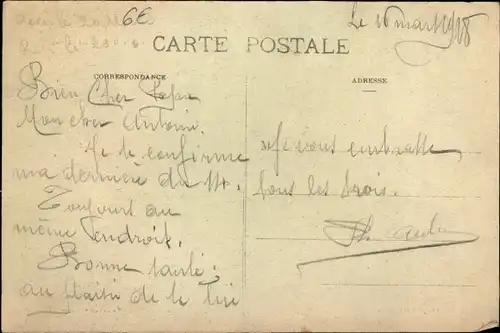 6E
Le 16 mars 1918
CARTE POSTALE
CORRESPONDANCE
ADRESSE
Bien Cher Papa
Mon cher Antoine.
Je te confirme
ma dernière du 14.
Toujours au
même endroit.
Bonne santé.
au plaisir de te lire
Je vous embrasse
tous les trois.